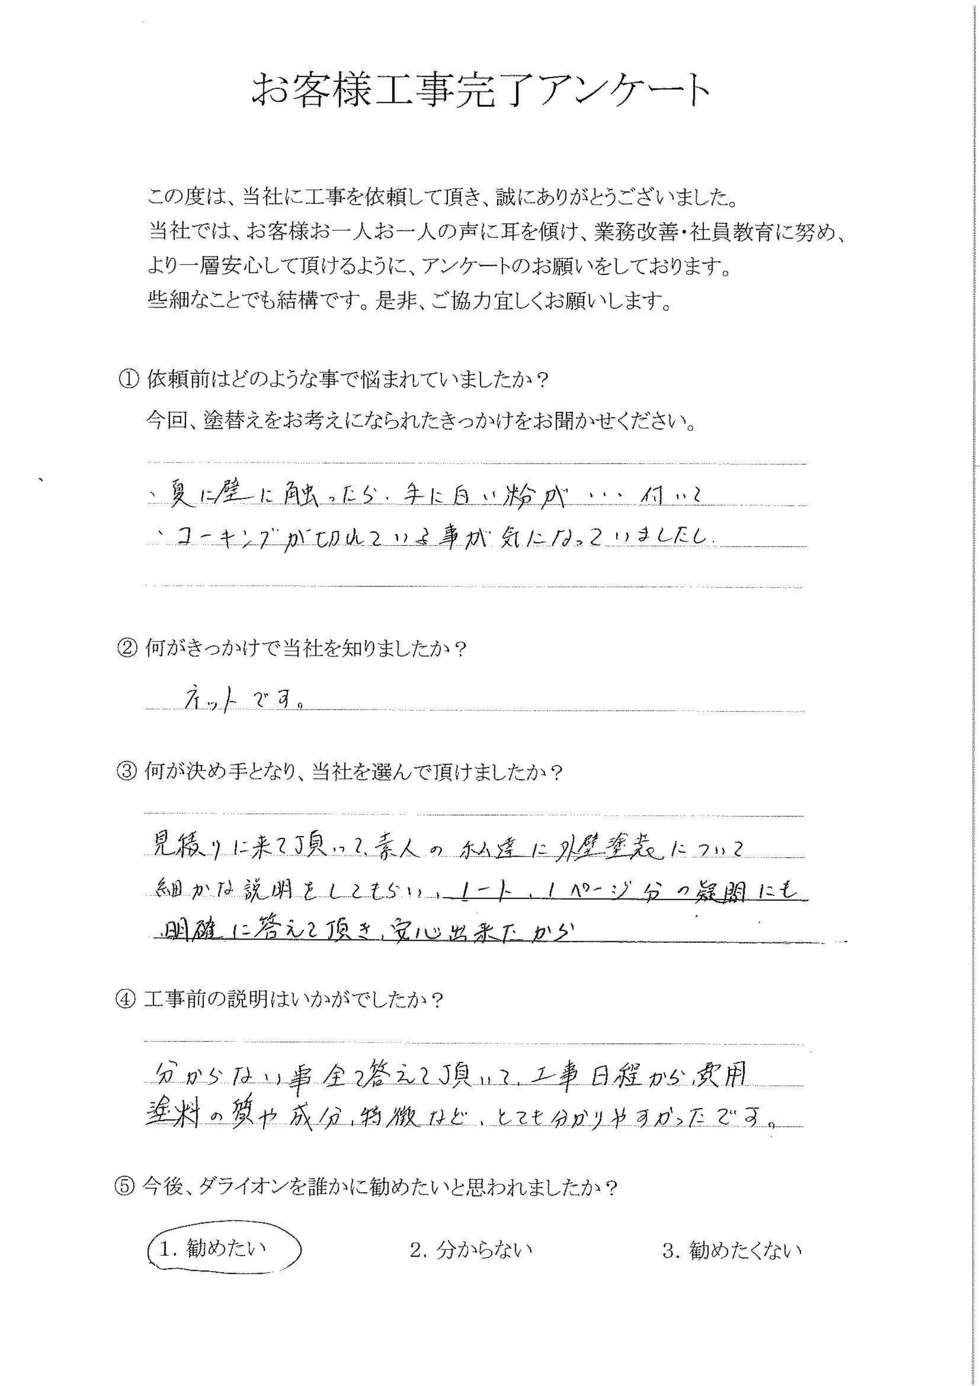 お客様工事完了アンケート
この度は、当社に工事を依頼して頂き、誠にありがとうございました。
当社では、お客様お一人お一人の声に耳を傾け、業務改善・社員教育に努め、
より一層安心して頂けるように、アンケートのお願いをしております。
些細なことでも結構です。是非、ご協力宜しくお願いします。
① 依頼前はどのような事で悩まれていましたか？
今回、塗替えをお考えになられたきっかけをお聞かせください。
、夏に壁に触ったら、手に白い粉が・・・付いて
、コーキングが切れている事が気になっていましたし.
② 何がきっかけで当社を知りましたか？
ネットです。
③ 何が決め手となり、当社を選んで頂けましたか？
見積りに来て頂いて、素人の私達に外壁塗装について
細かな説明をしてもらい、ノート、1ページ分の疑問にも
明確に答えて頂き、安心出来たから
④ 工事前の説明はいかがでしたか？
分からない事全て答えて頂いて、工事日程から、費用
塗料の質や成分、特徴など、とても分かりやすかったです。
⑤ 今後、ダライオンを誰かに勧めたいと思われましたか？
1. 勧めたい 2. 分からない 3. 勧めたくない